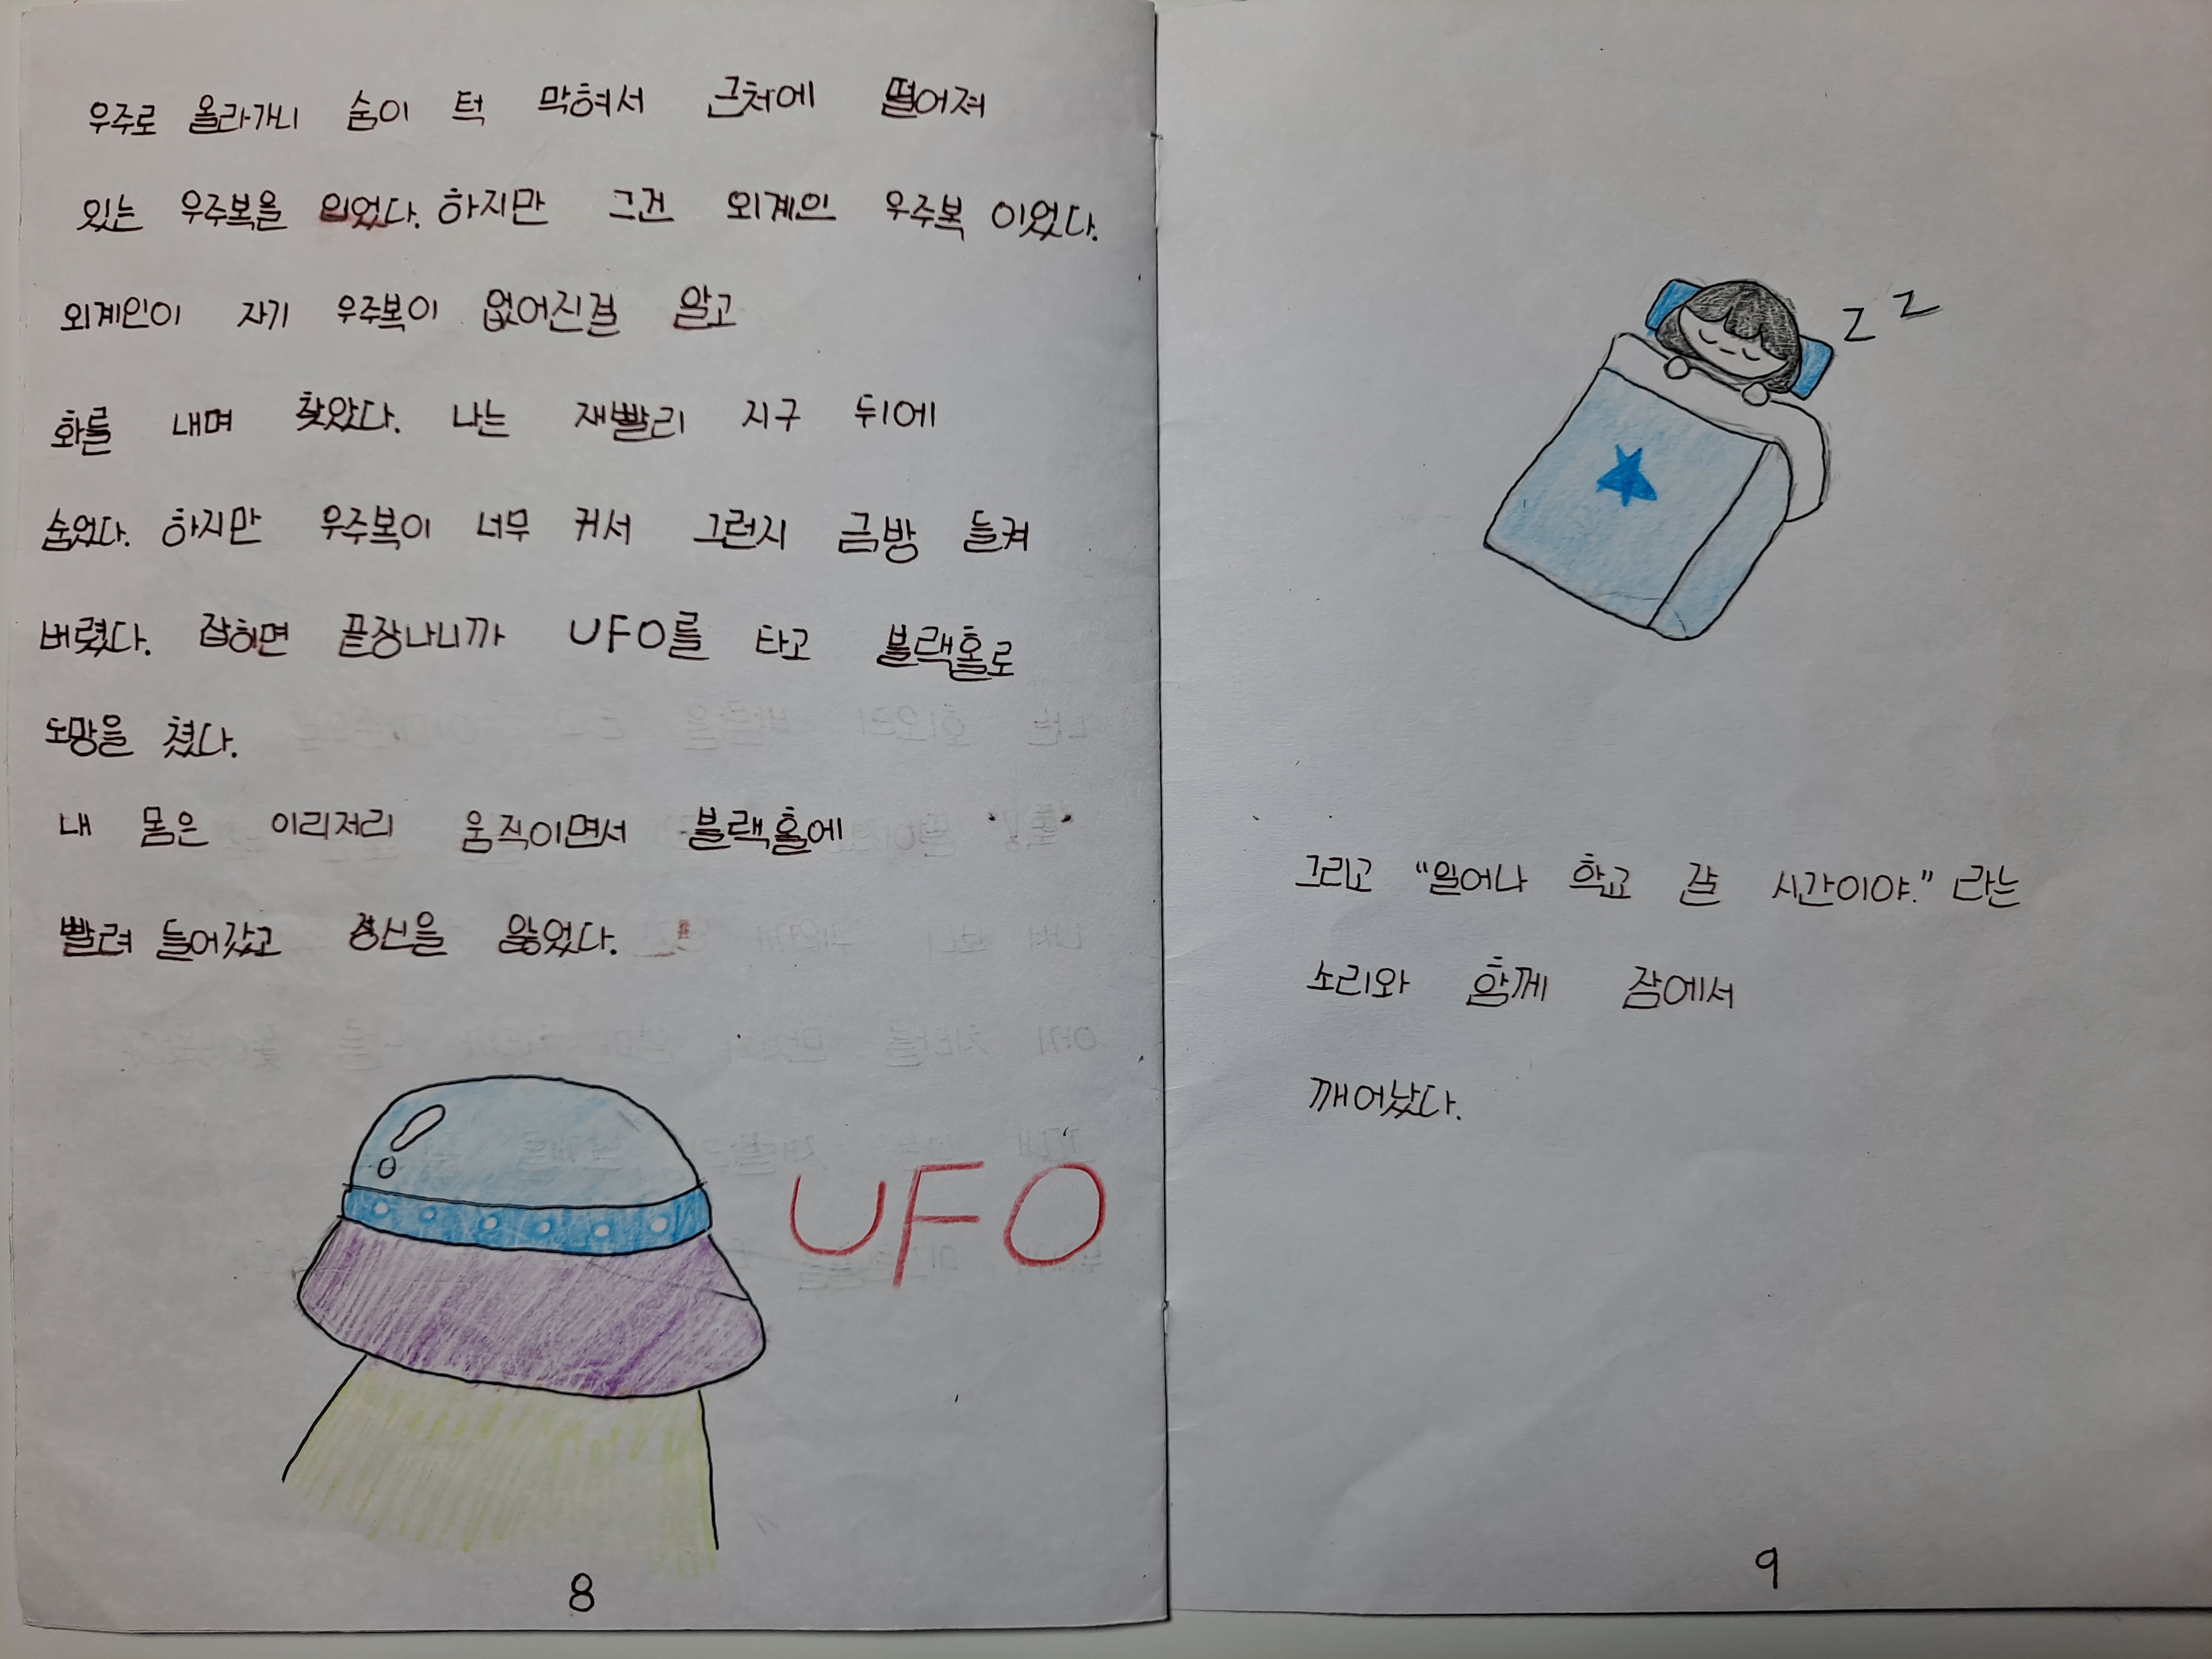 우주로 올라가니 숨이 턱 막혀서 근처에 떨어져
있는 우주복을 입었다. 하지만 그건 외계인 우주복 이었다.
외계인이 자기 우주복이 없어진걸 알고
화를 내며 찾았다. 나는 재빨리 지구 뒤에
숨었다. 하지만 우주복이 너무 커서 그런지 금방 들켜
버렸다. 잡히면 끝장나니까 UFO를 타고 블랙홀로
도망을 쳤다.
내 몸은 이리저리 움직이면서 블랙홀에
빨려 들어갔고 정신을 잃었다.
UFO
8
z z
그리고 "일어나 학교 갈 시간이야." 라는
소리와 함께 잠에서
깨어났다.
9